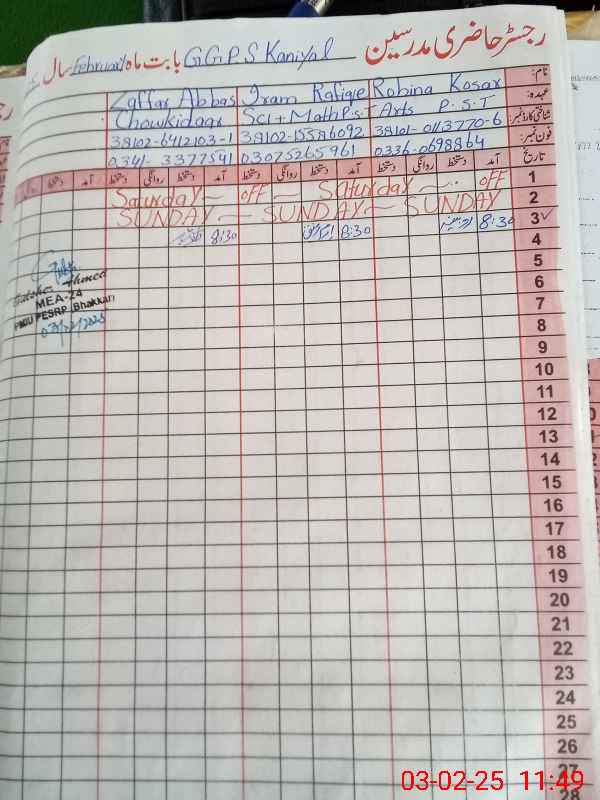 رجسٹر حاضری مدرسین G.G.P.S Kaniyal بابت ماہ February سال
نام: Robina Kosar Iram Rafiqe Zaffar Abbas
عہدہ: Arts P.S.T Sci + Math P.S.T Chowkidaar
شناختی کارڈ نمبر: 38101-0113770-6 38102-1558609 2 38102-6412103-1
فون نمبر: 0336-0698864 03075265961 0341-3377541
تاریخ آمد دستخط روانگی دستخط آمد دستخط روانگی دستخط آمد دستخط روانگی دستخط آمد دستخط
1 Saturday — OFF — Saturday — OFF
2 SUNDAY — SUNDAY — SUNDAY
3 ✓ 8:30 8:30 8:30
4
5
6
7
8
9
10
11
12
13
14
15
16
17
18
19
20
21
22
23
24
25
26
27
28
Ahmed
MEA-24
PMIU PESRP, Bhakkar
03/02/2025
03-02-25 11:49